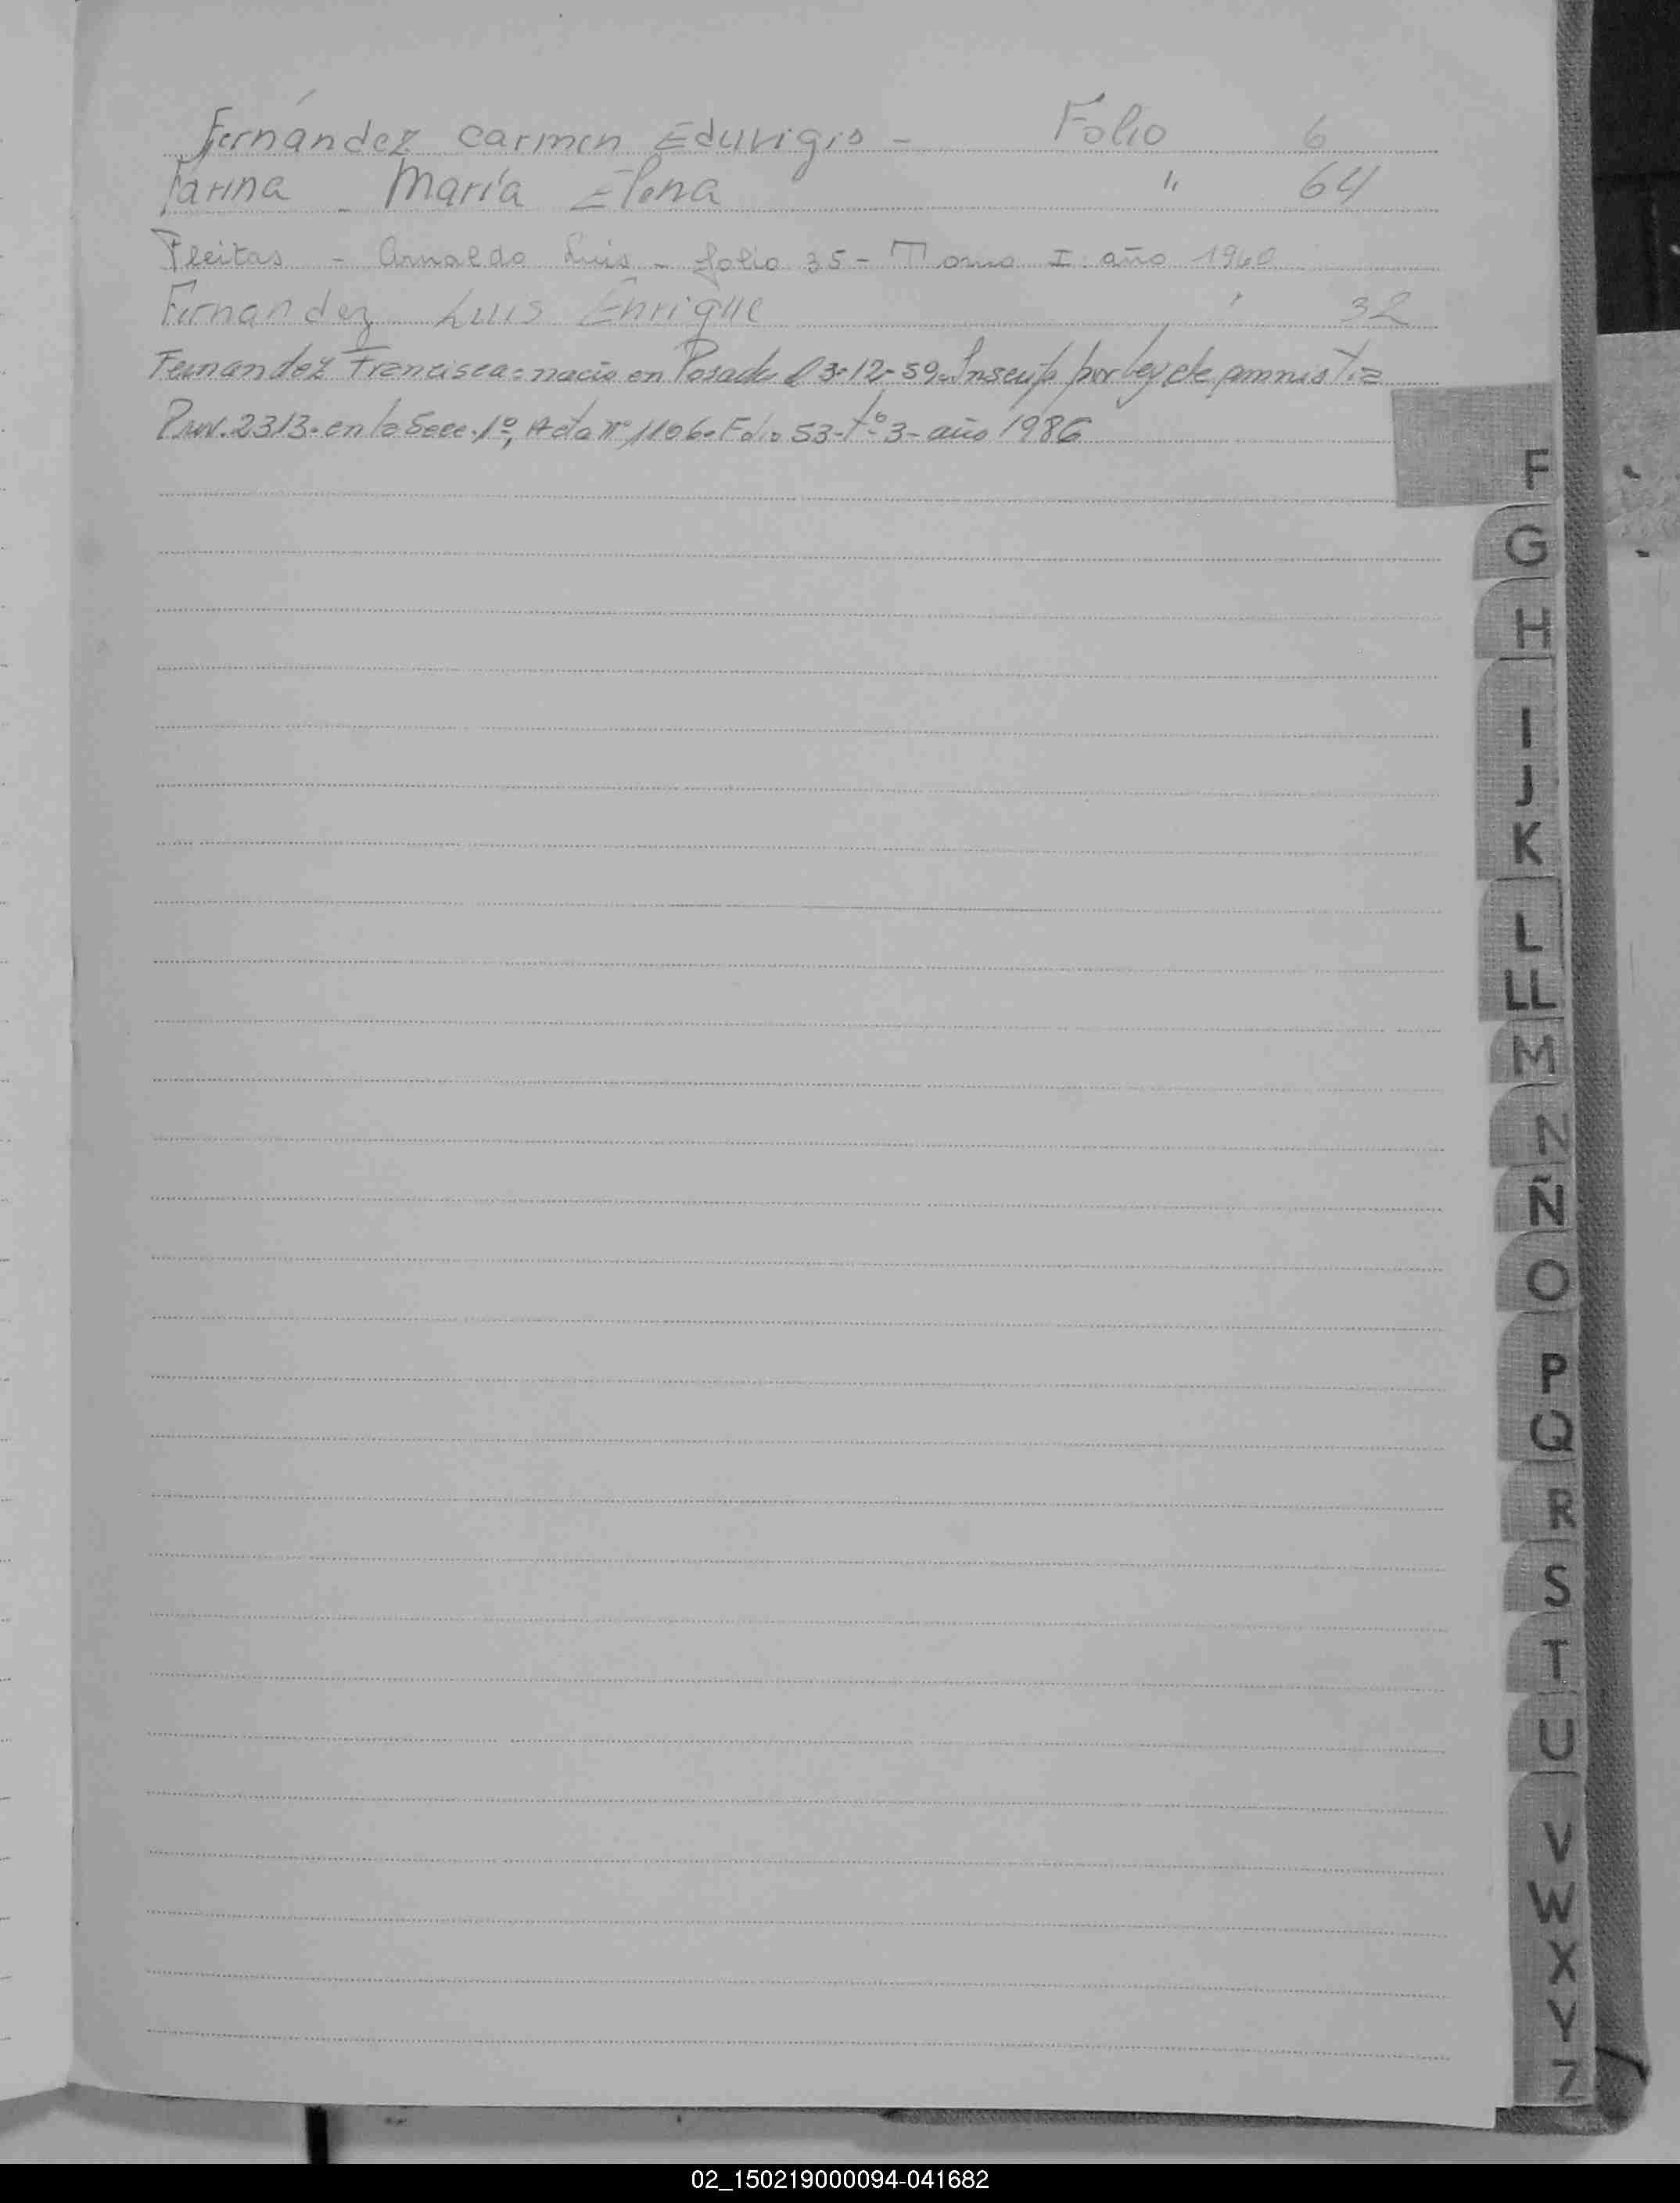 Fernández Carmen Eduvigis - Folio 6
Farina María Elena " 64
Fleitas - Arnaldo Luis - folio 35 - Tomo I año 1960
Fernandez Luis Enrique " 32
Fernandez Francisca = nacio en Posadas el 3-12-59. Inscripta por ley de amnistia
Prov. 2313. en la Secc. 1º, Acta nº 1106. Folio 53-tº 3- año 1986
F
G
H
I
J
K
L
LL
M
N
Ñ
O
P
Q
R
S
T
U
V
W
X
Y
Z
02_150219000094-041682